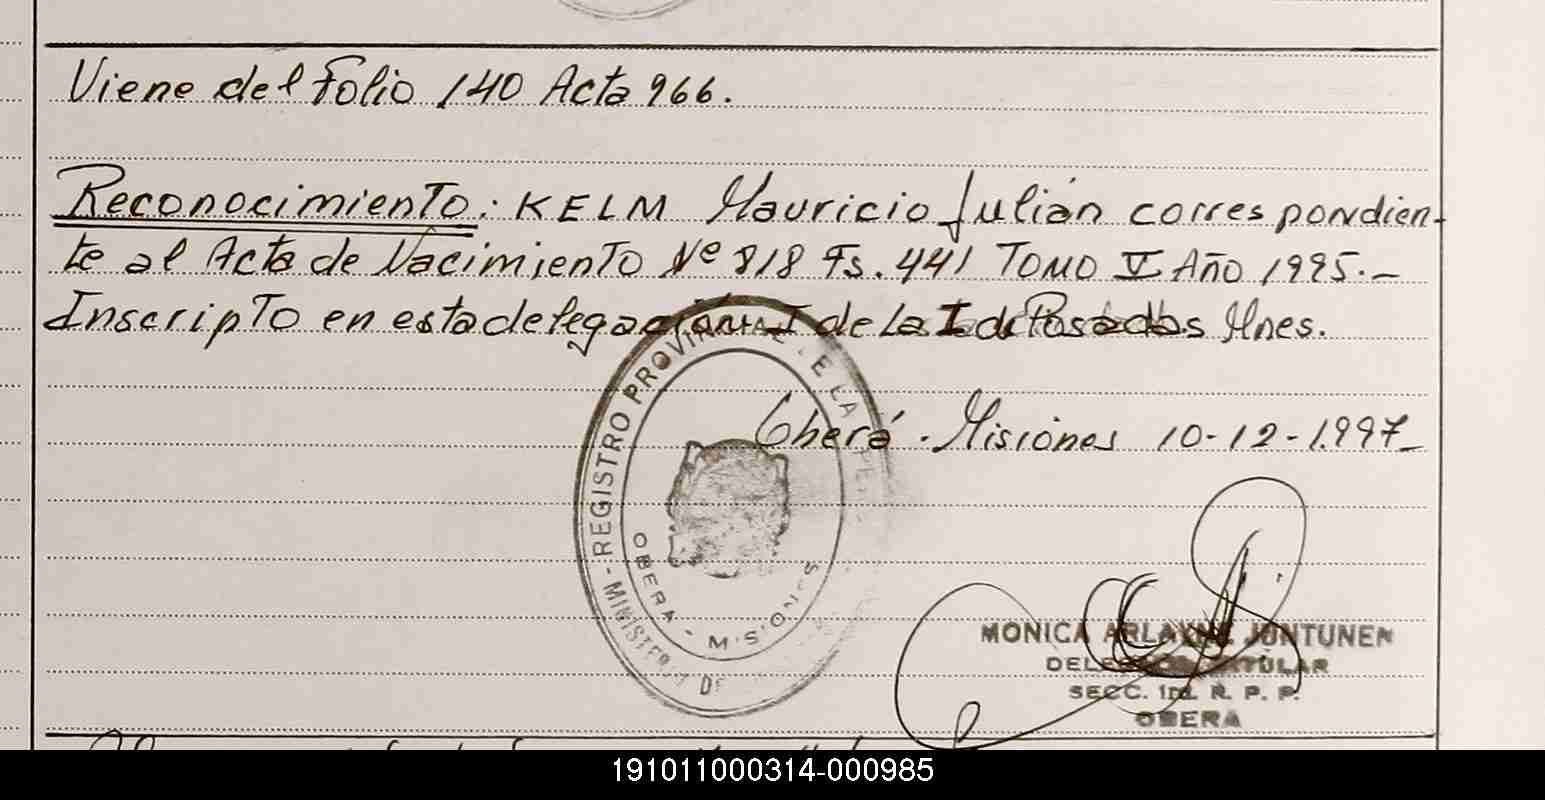 Viene del Folio 140 Acta 966.
Reconocimiento: KELM Mauricio Julián correspondien-
te al Acta de Nacimiento Nº 818 Fs. 441 TOMO V Año 1995.-
Inscripto en esta delegación I de La I de Posadas Mnes.
Oberá. Misiones 10-12-1.997-
- REGISTRO PROVINCIAL DE LA
MINISTERIO DE
OBERA - MISIONES
MONICA ARLAYNE JUNTUNEN
DELEGADA TITULAR
SECC. 1ra. R. P. P.
OBERA
191011000314-000985